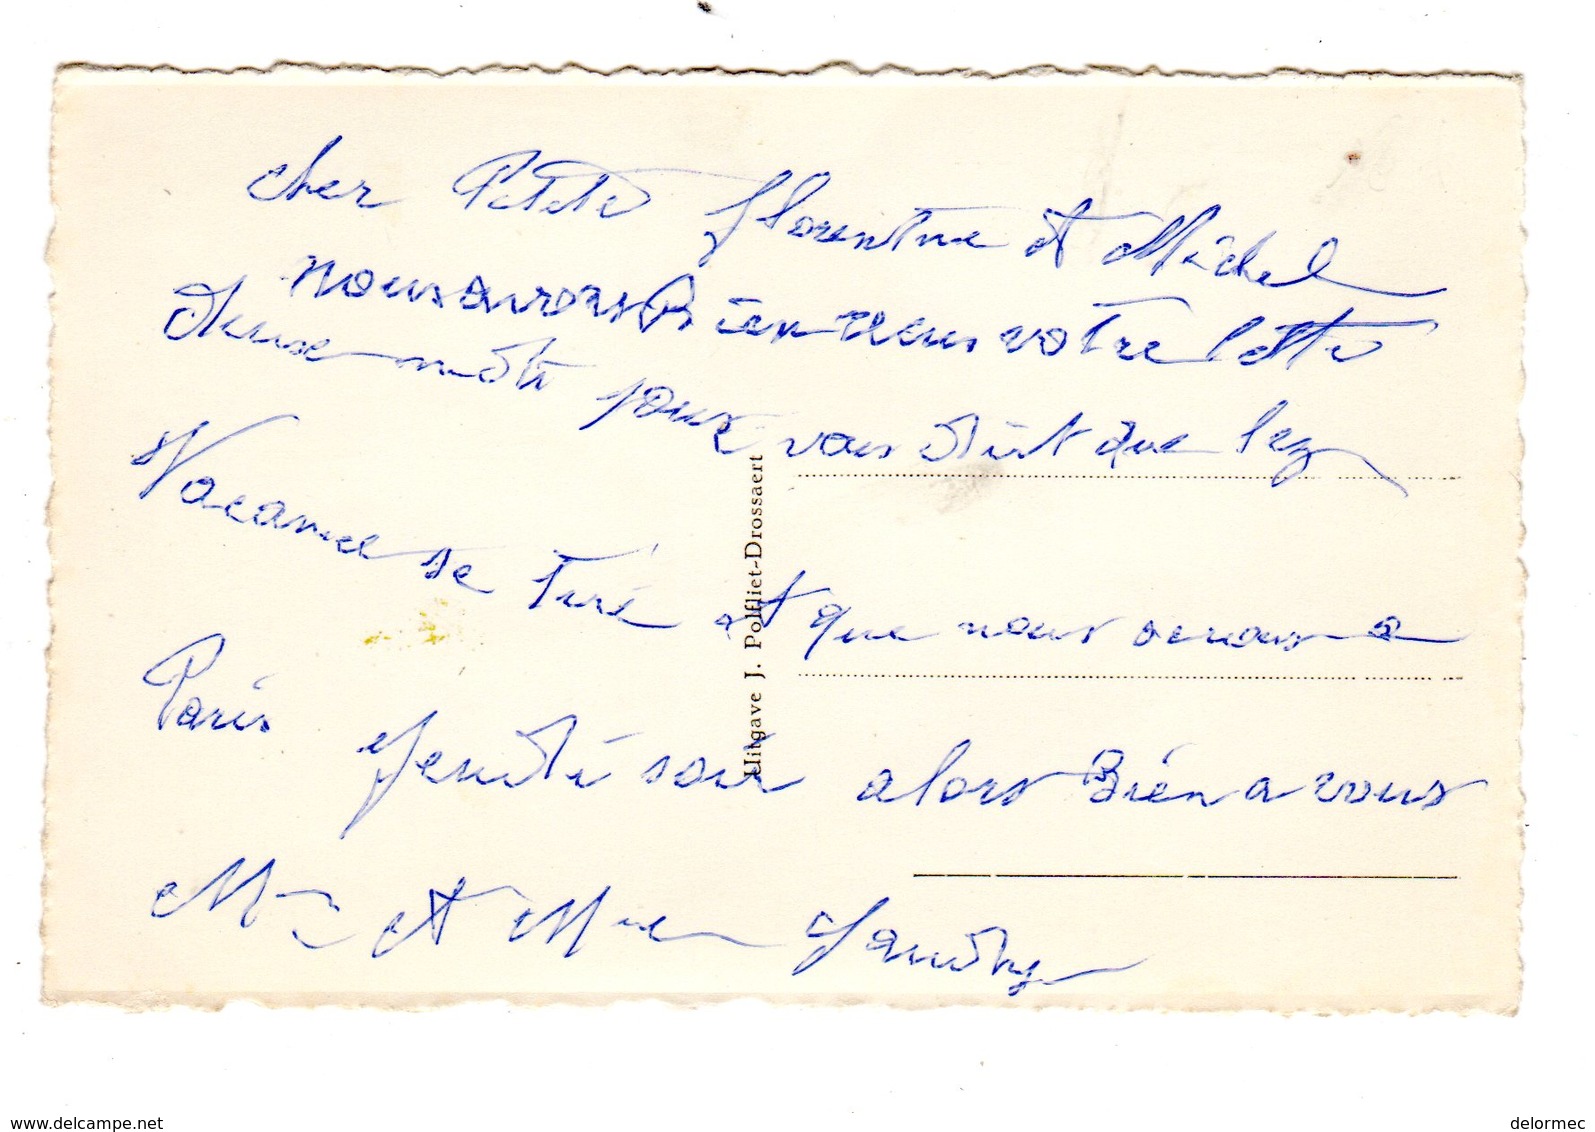 cher Petite florentine et Michel
nous avons Bien reçus votre lettre
deuse môts pour vous dirt que lez
Vacance se tiré et que nous serons a
Paris jeudi soir alors Bien a vous
Mr et Mme
Uitgave J. Polfliet-Drossaert
www.delcampe.net
delormec